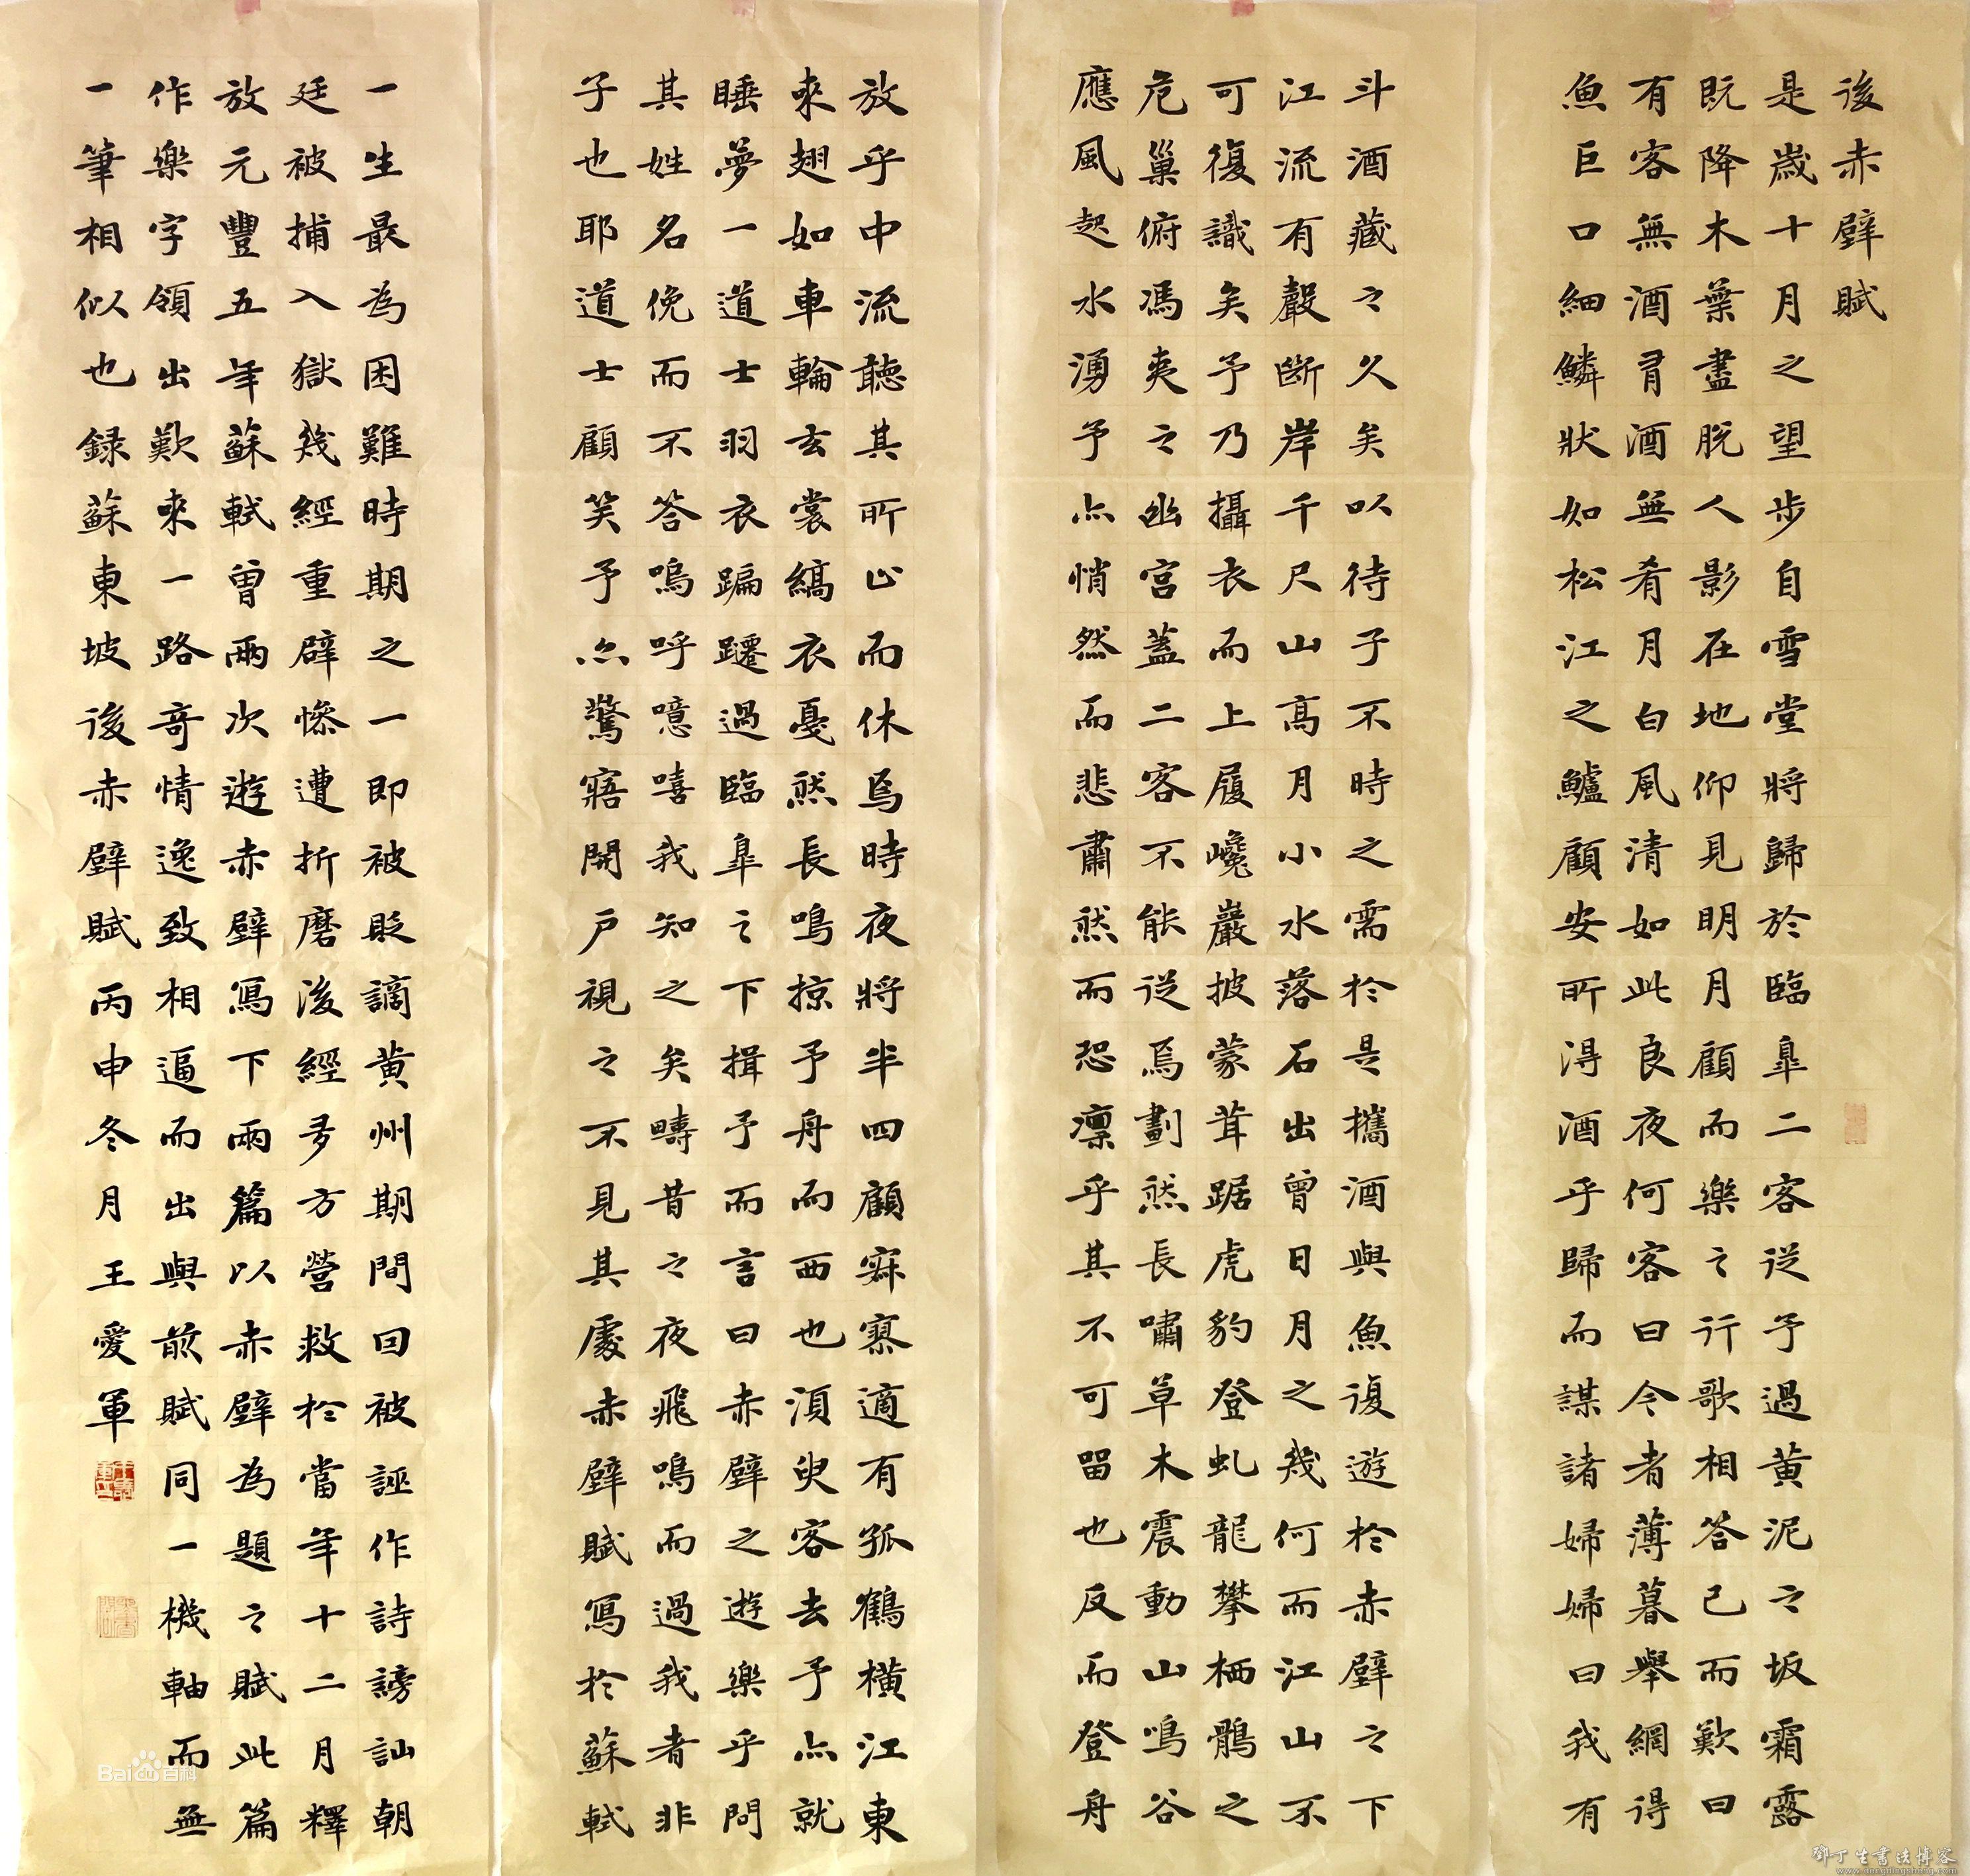 後赤壁賦
是歲十月之望步自雪堂將歸於臨皋二客從予過黃泥之坂霜露
既降木葉盡脫人影在地仰見明月顧而樂之行歌相答已而歎曰
有客無酒有酒無肴月白風清如此良夜何客曰今者薄暮舉網得
魚巨口細鱗狀如松江之鱸顧安所得酒乎歸而謀諸婦婦曰我有
斗酒藏之久矣以待子不時之需於是攜酒與魚復遊於赤壁之下
江流有聲斷岸千尺山高月小水落石出曾日月之幾何而江山不
可復識矣予乃攝衣而上履巉巖披蒙茸踞虎豹登虬龍攀栖鶻之
危巢俯馮夷之幽宮蓋二客不能從焉劃然長嘯草木震動山鳴谷
應風起水湧予亦悄然而悲肅然而恐凜乎其不可留也反而登舟
放乎中流聽其所止而休焉時夜將半四顧寂寥適有孤鶴橫江東
來翅如車輪玄裳縞衣戛然長鳴掠予舟而西也須臾客去予亦就
睡夢一道士羽衣蹁躚過臨皋之下揖予而言曰赤壁之遊樂乎問
其姓名俛而不答嗚呼噫嘻我知之矣疇昔之夜飛鳴而過我者非
子也耶道士顧笑予亦驚寤開戶視之不見其處赤壁賦寫於蘇軾
一生最為困難時期之一即被貶謫黃州期間回被誣作詩謗訕朝
廷被捕入獄幾經重辟慘遭折磨後經多方營救於當年十二月釋
放元豐五年蘇軾曾兩次遊赤壁寫下兩篇以赤壁為題之賦此篇
作樂字領出歎來一路奇情逸致相逼而出與前賦同一機軸而無
一筆相似也録蘇東坡後赤壁賦丙申冬月王愛軍
Baidu百科
鄧丁生書法博客
www.dengdingsheng.com